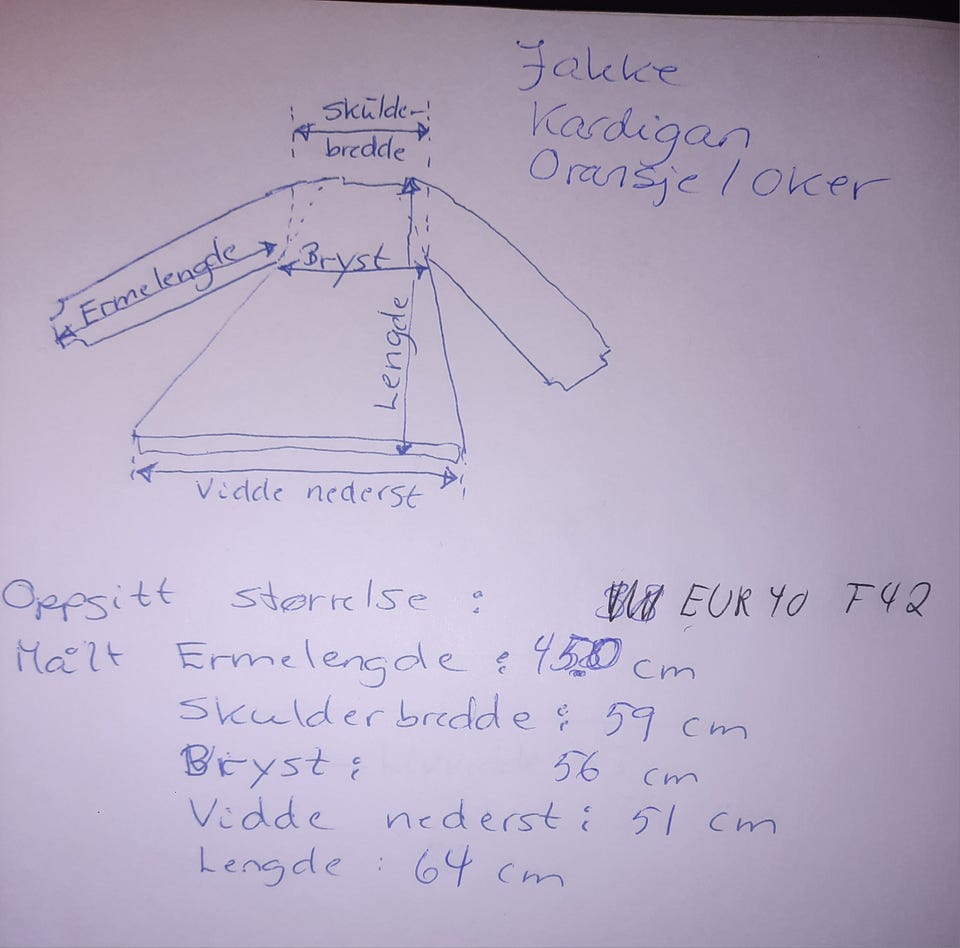 Jakke
Kardigan
Oransje / Oker
Skulder-
bredde
Ermelengde
Bryst
Lengde
Vidde nederst
Oppgitt størrelse : EUR 40 F42
Målt Ermelengde : cm
Skulderbredde : 59 cm
Bryst : 56 cm
Vidde nederst : 51 cm
Lengde : 64 cm